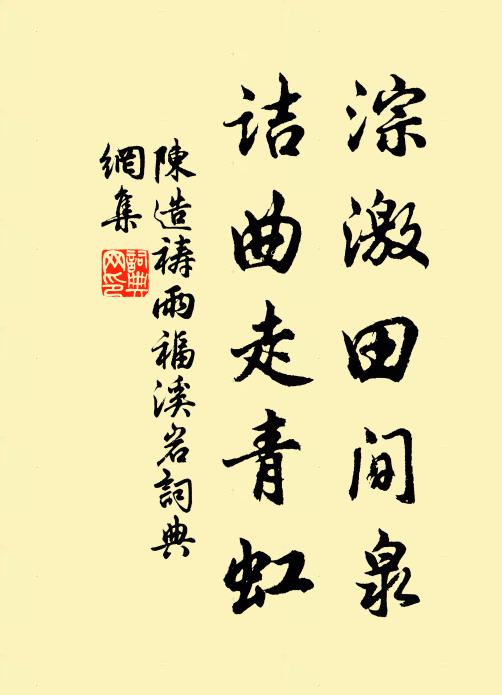 淙激田間泉
詰曲走青虹
陳造禱雨福溪岩詞典
網集
詞典
网印